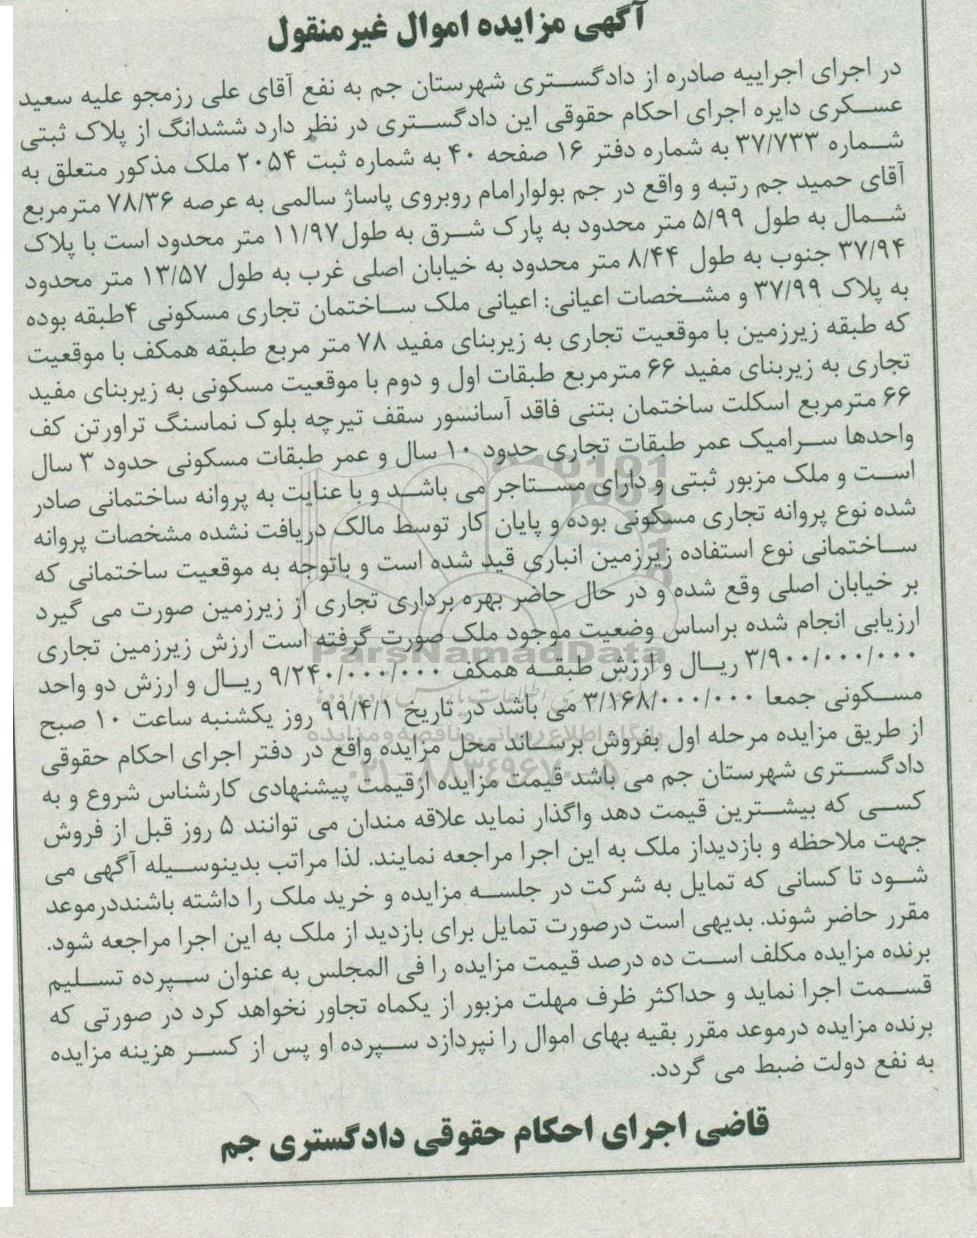 آگهی مزایده اموال غیرمنقول
در اجرای اجراییه صادره از دادگستری شهرستان جم به نفع آقای علی رزمجو علیه سعید
عسکری دایره اجرای احکام حقوقی این دادگستری در نظر دارد ششدانگ از پلاک ثبتی
شماره ۳۷/۷۳۳ به شماره دفتر ۱۶ صفحه ۴۰ به شماره ثبت ۲۰۵۴ ملک مذکور متعلق به
آقای حمید جم رتبه و واقع در جم بولوارامام روبروی پاساژ سالمی به عرصه ۷۸/۳۶ مترمربع
شمال به طول ۵/۹۹ متر محدود به پارک شرق به طول۱۱/۹۷ متر محدود است با پلاک
۳۷/۹۴ جنوب به طول ۸/۴۴ متر محدود به خیابان اصلی غرب به طول ۱۳/۵۷ متر محدود
به پلاک ۳۷/۹۹ و مشخصات اعیانی: اعیانی ملک ساختمان تجاری مسکونی ۴طبقه بوده
که طبقه زیرزمین با موقعیت تجاری به زیربنای مفید ۷۸ متر مربع طبقه همکف با موقعیت
تجاری به زیربنای مفید ۶۶ مترمربع طبقات اول و دوم با موقعیت مسکونی به زیربنای مفید
۶۶ مترمربع اسکلت ساختمان بتنی فاقد آسانسور سقف تیرچه بلوک نماسنگ تراورتن کف
واحدها سرامیک عمر طبقات تجاری حدود ۱۰ سال و عمر طبقات مسکونی حدود ۳ سال
است و ملک مزبور ثبتی و دارای مستاجر می باشد و با عنایت به پروانه ساختمانی صادر
شده نوع پروانه تجاری مسکونی بوده و پایان کار توسط مالک دریافت نشده مشخصات پروانه
ساختمانی نوع استفاده زیرزمین انباری قید شده است و باتوجه به موقعیت ساختمانی که
بر خیابان اصلی وقع شده و در حال حاضر بهره برداری تجاری از زیرزمین صورت می گیرد
ارزیابی انجام شده براساس وضعیت موجود ملک صورت گرفته است ارزش زیرزمین تجاری
۳/۹۰۰/۰۰۰/۰۰۰ ریال و ارزش طبقه همکف ۹/۲۴۰/۰۰۰/۰۰۰ ریال و ارزش دو واحد
مسکونی جمعا ۳/۱۶۸/۰۰۰/۰۰۰ می باشد در تاریخ ۹۹/۴/۱ روز یکشنبه ساعت ۱۰ صبح
از طریق مزایده مرحله اول بفروش برساند محل مزایده واقع در دفتر اجرای احکام حقوقی
دادگستری شهرستان جم می باشد قیمت مزایده ازقیمت پیشنهادی کارشناس شروع و به
کسی که بیشترین قیمت دهد واگذار نماید علاقه مندان می توانند ۵ روز قبل از فروش
جهت ملاحظه و بازدیداز ملک به این اجرا مراجعه نمایند. لذا مراتب بدینوسیله آگهی می
شود تا کسانی که تمایل به شرکت در جلسه مزایده و خرید ملک را داشته باشنددرموعد
مقرر حاضر شوند. بدیهی است درصورت تمایل برای بازدید از ملک به این اجرا مراجعه شود.
برنده مزایده مکلف است ده درصد قیمت مزایده را فی المجلس به عنوان سپرده تسلیم
قسمت اجرا نماید و حداکثر ظرف مهلت مزبور از یکماه تجاور نخواهد کرد در صورتی که
برنده مزایده درموعد مقرر بقیه بهای اموال را نپردازد سپرده او پس از کسر هزینه مزایده
به نفع دولت ضبط می گردد.
قاضی اجرای احکام حقوقی دادگستری جم
ParsNamadData
پایگاه اطلاع رسانی مناقصه و مزایده